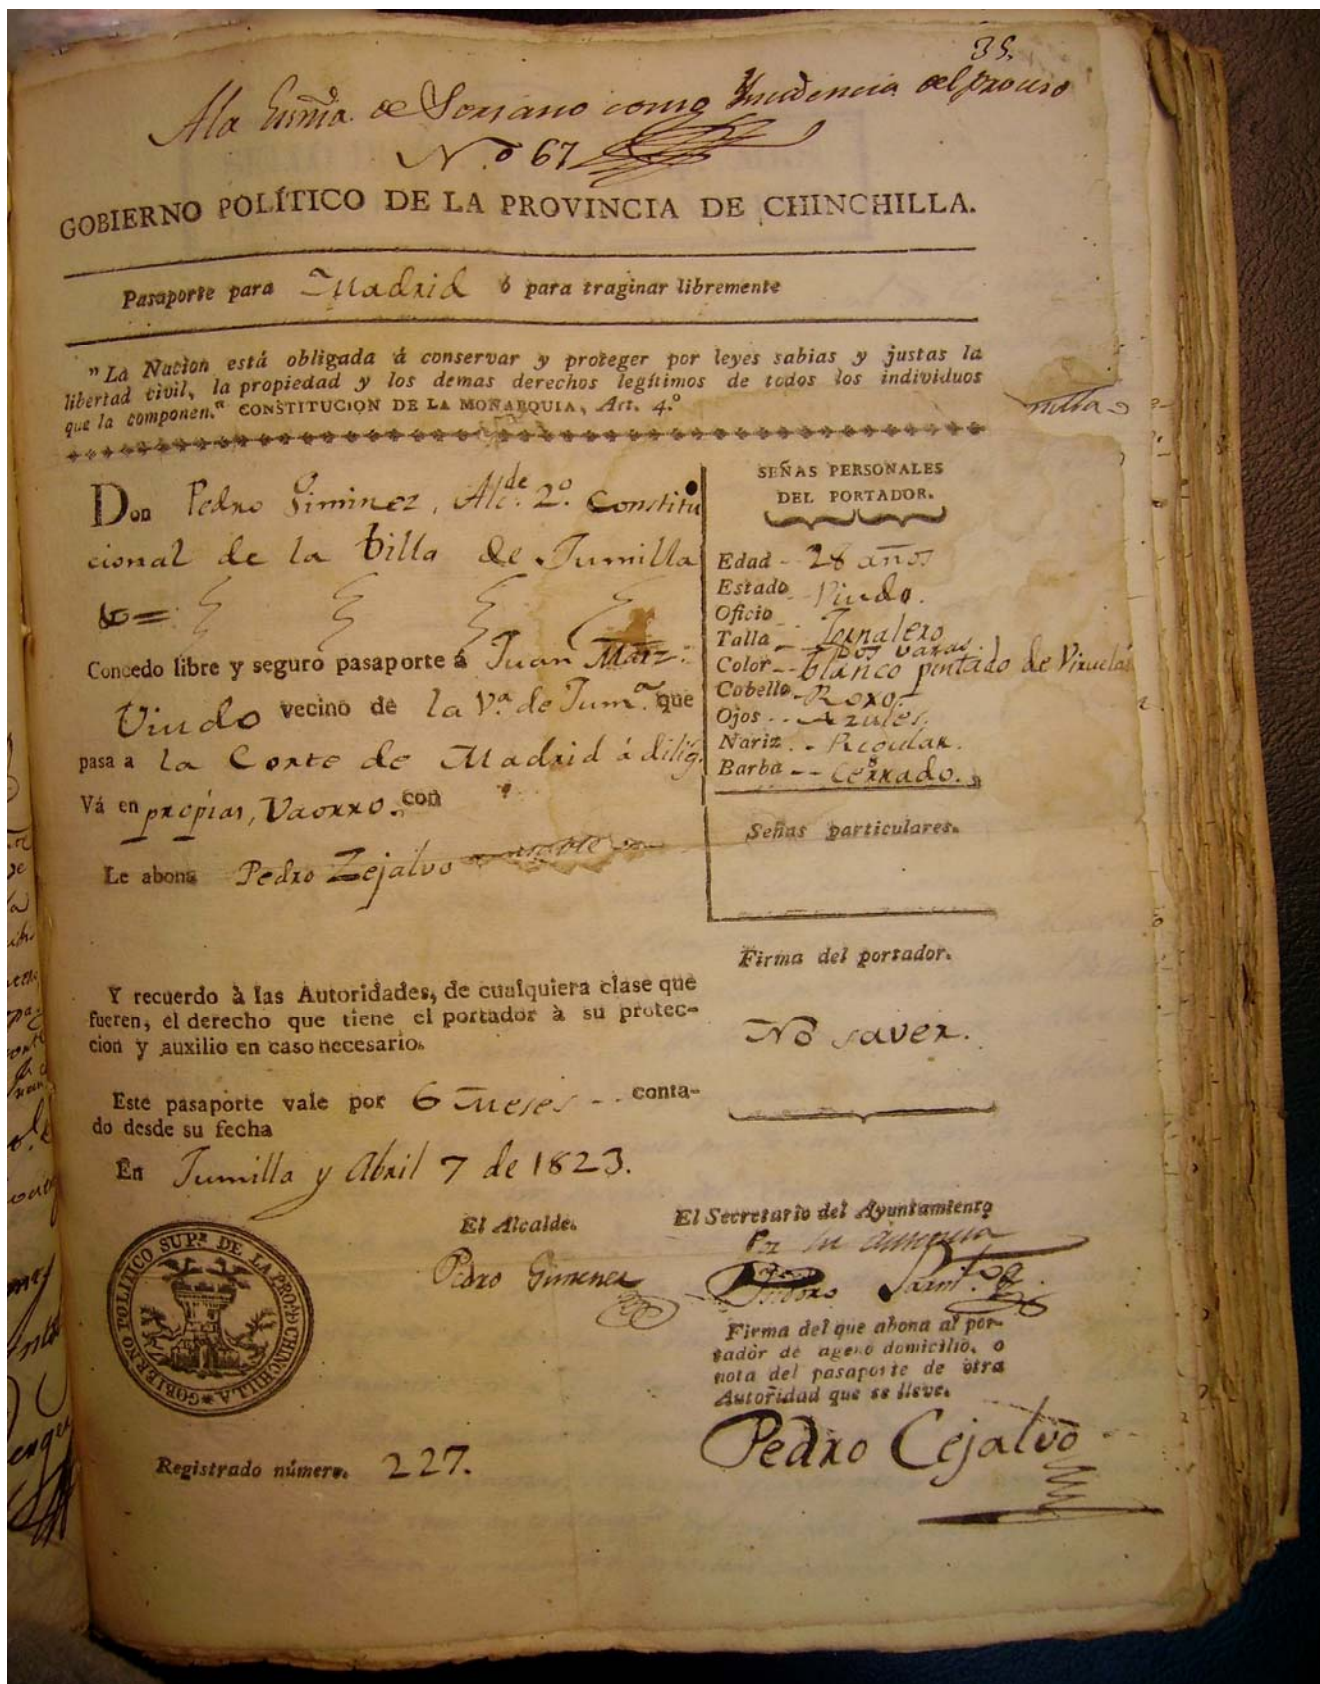 35.
A la Essnía. de Soriano como Yncidencia del proceso
N.º 67
GOBIERNO POLÍTICO DE LA PROVINCIA DE CHINCHILLA.
Pasaporte para Madrid ó para traginar libremente
"La Nacion está obligada á conservar y proteger por leyes sabias y justas la
libertad civil, la propiedad y los demas derechos legítimos de todos los individuos
que la componen." CONSTITUCION DE LA MONARQUIA, Art. 4.º
Don Pedro Giminez, Alc.de 2.º Constitu
cional de la billa de Jumilla
&=
Concedo libre y seguro pasaporte á Juan Marz:
Viudo vecino de la V.a de Jum.a que
pasa a la Corte de Madrid á dilig.
Vá en propias, Vaorro. con
Le abona Pedro Zejalvo
Y recuerdo à las Autoridades, de cualquiera clase que
fueren, el derecho que tiene el portador à su protec-
cion y auxilio en caso necesario.
Este pasaporte vale por 6 Meses -- conta-
do desde su fecha
En Jumilla y Abril 7 de 1823.
El Alcalde.
Pedro Gimenez
GOBIERNO POLITICO SUP.R DE LA PROV.A D CHINCHILLA
Registrado número. 227.
SEÑAS PERSONALES
DEL PORTADOR.
Edad - 28 años
Estado - Viudo.
Oficio - Jornalero
Talla - Dos varas.
Color - blanco pintado de Viruelas
Cobello - Roxo.
Ojos - Azules.
Nariz - Regular.
Barba - Cerrado.
Señas particulares.
Firma del portador.
No saver.
El Secretario del Ayuntamiento
Por su ausencia
Isidoro Santos
Firma del que abona al por-
tador de ageno domicilio, o
nota del pasaporte de otra
Autoridad que se lleve.
Pedro Cejalvo